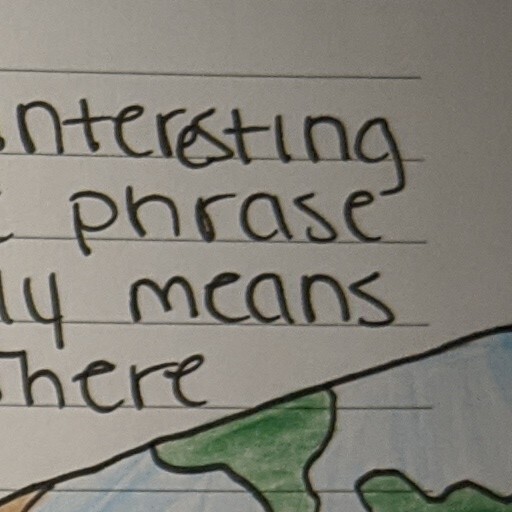 interesting
phrase
ly means
here